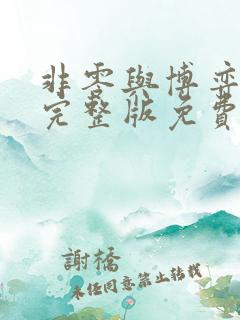 非零與博弈
完整版免費
謝橋
未任同意禁止转载